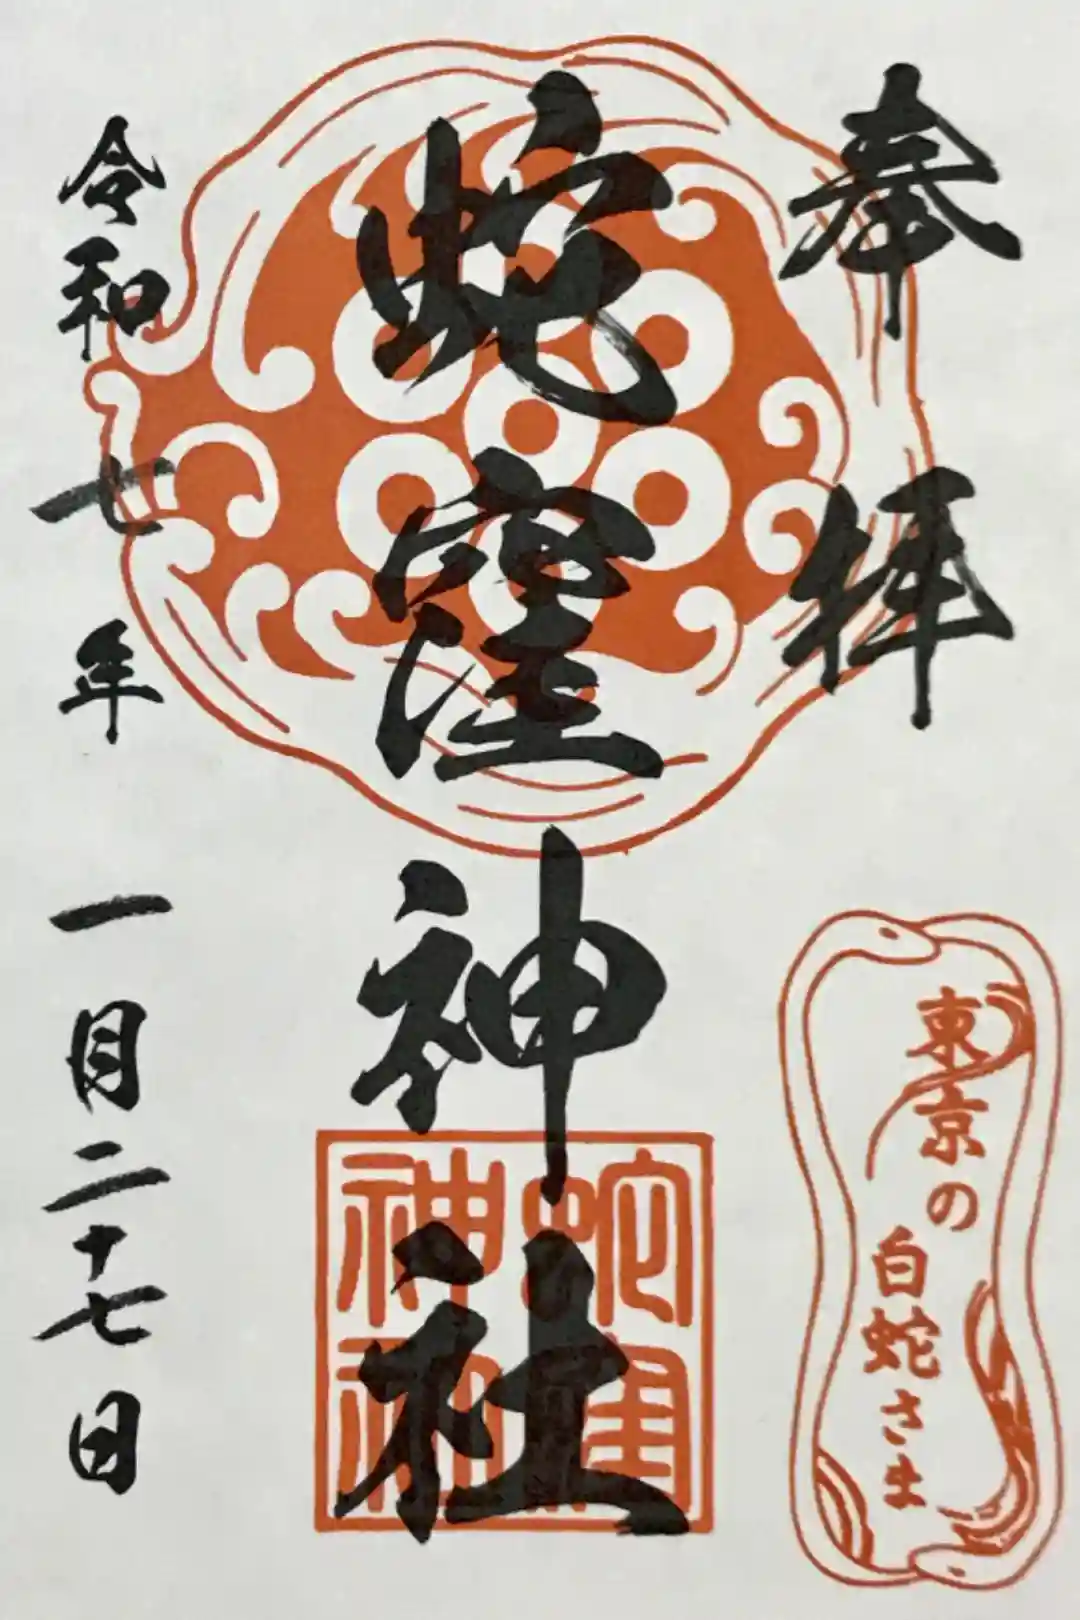 奉拝
東京の
白蛇さま
蛇窪神社
蛇窪
神社
令和七年一月二十七日